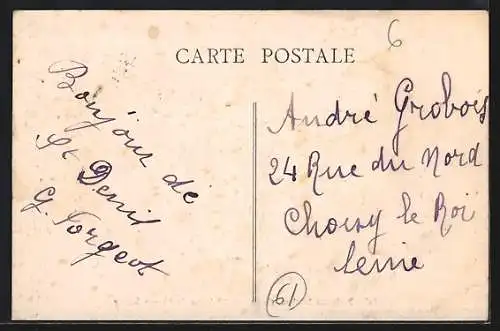 6
CARTE POSTALE
Bonjour de
St Denis
G. Forgeot
André Grobois
24 Rue du Nord
Choisy le Roi
Seine
61